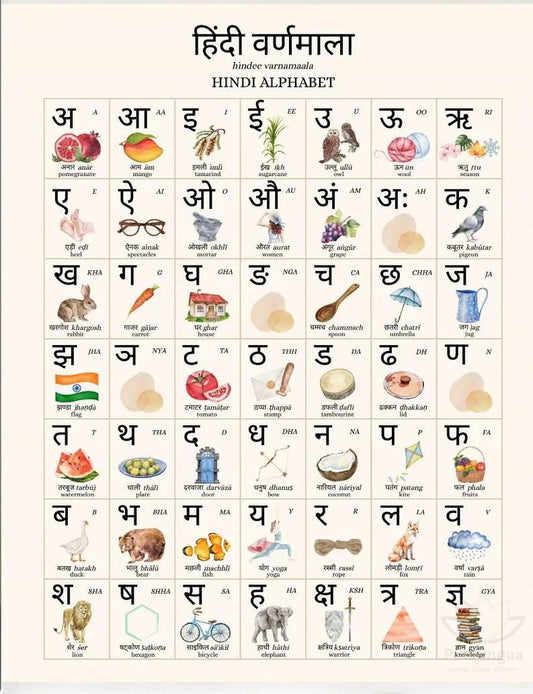 हिंदी वर्णमाला
hindee varnamaala
HINDI ALPHABET
अ A
अनार anār
pomegranate
आ AA
आम ām
mango
इ I
इमली imlī
tamarind
ई EE
ईख īkh
sugarcane
उ U
उल्लू ullū
owl
ऊ OO
ऊन ūn
wool
ऋ RI
ऋतु ṛtu
season
ए E
एड़ी eḍī
heel
ऐ AI
ऐनक ainak
spectacles
ओ O
ओखली okhlī
mortar
औ AU
औरत aurat
women
अं AM
अंगूर aṅgūr
grape
अः AH
क K
कबूतर kabūtar
pigeon
ख KHA
खरगोश khargosh
rabbit
ग G
गाजर gājar
carrot
घ GHA
घर ghar
house
ङ NGA
च CA
चम्मच chammach
spoon
छ CHHA
छतरी chatrī
umbrella
ज JA
जग jag
jug
झ JHA
झण्डा jhaṇḍā
flag
ञ NYA
ट TA
टमाटर ṭamāṭar
tomato
ठ THH
ठप्पा ṭhappā
stamp
ड DA
डफली ḍaflī
tambourine
ढ DH
ढक्कन ḍhakkaṇ
lid
ण N
त T
तरबूज tarbūj
watermelon
थ THA
थाली thālī
plate
द D
दरवाजा darvāzā
door
ध DHA
धनुष dhanuṣ
bow
न NA
नारियल nāriyal
coconut
प P
पतंग patang
kite
फ FA
फल phala
fruits
ब B
बतख batakh
duck
भ BHA
भालू bhālū
bear
म MA
मछली machhlī
fish
य Y
योग yoga
yoga
र R
रस्सी rassi
rope
ल LA
लोमड़ी lomṛī
fox
व V
वर्षा varṣā
rain
श SHA
शेर śer
lion
ष SHHA
षट्कोण ṣaṭkoṇa
hexagon
स SA
साइकिल sā'ikil
bicycle
ह HA
हाथी hāthī
elephant
क्ष KSH
क्षत्रिय kṣatriya
warrior
त्र TRA
त्रिकोण trikoṇa
triangle
ज्ञ GYA
ज्ञान gyān
knowledge